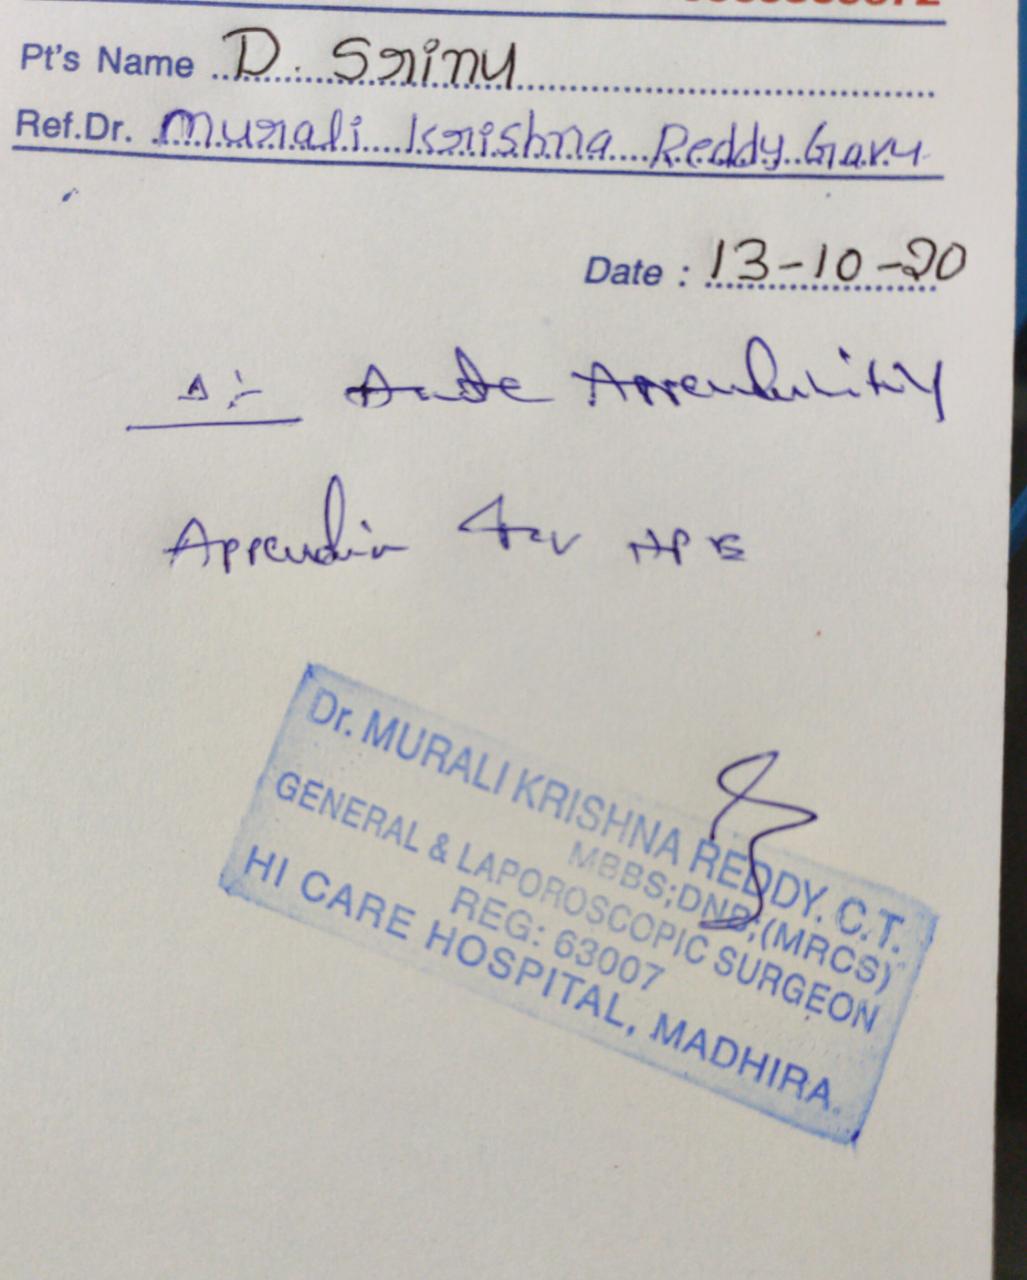 Pt's Name D. Srinu
Ref.Dr. Murali Krishna Reddy Garu
Date : 13-10-20
Δ:- Acute Appendicitis
Appendix for HPE
Dr. MURALI KRISHNA REDDY. C.T.
MBBS;DNB;(MRCS)
GENERAL & LAPOROSCOPIC SURGEON
REG: 63007
HI CARE HOSPITAL, MADHIRA.